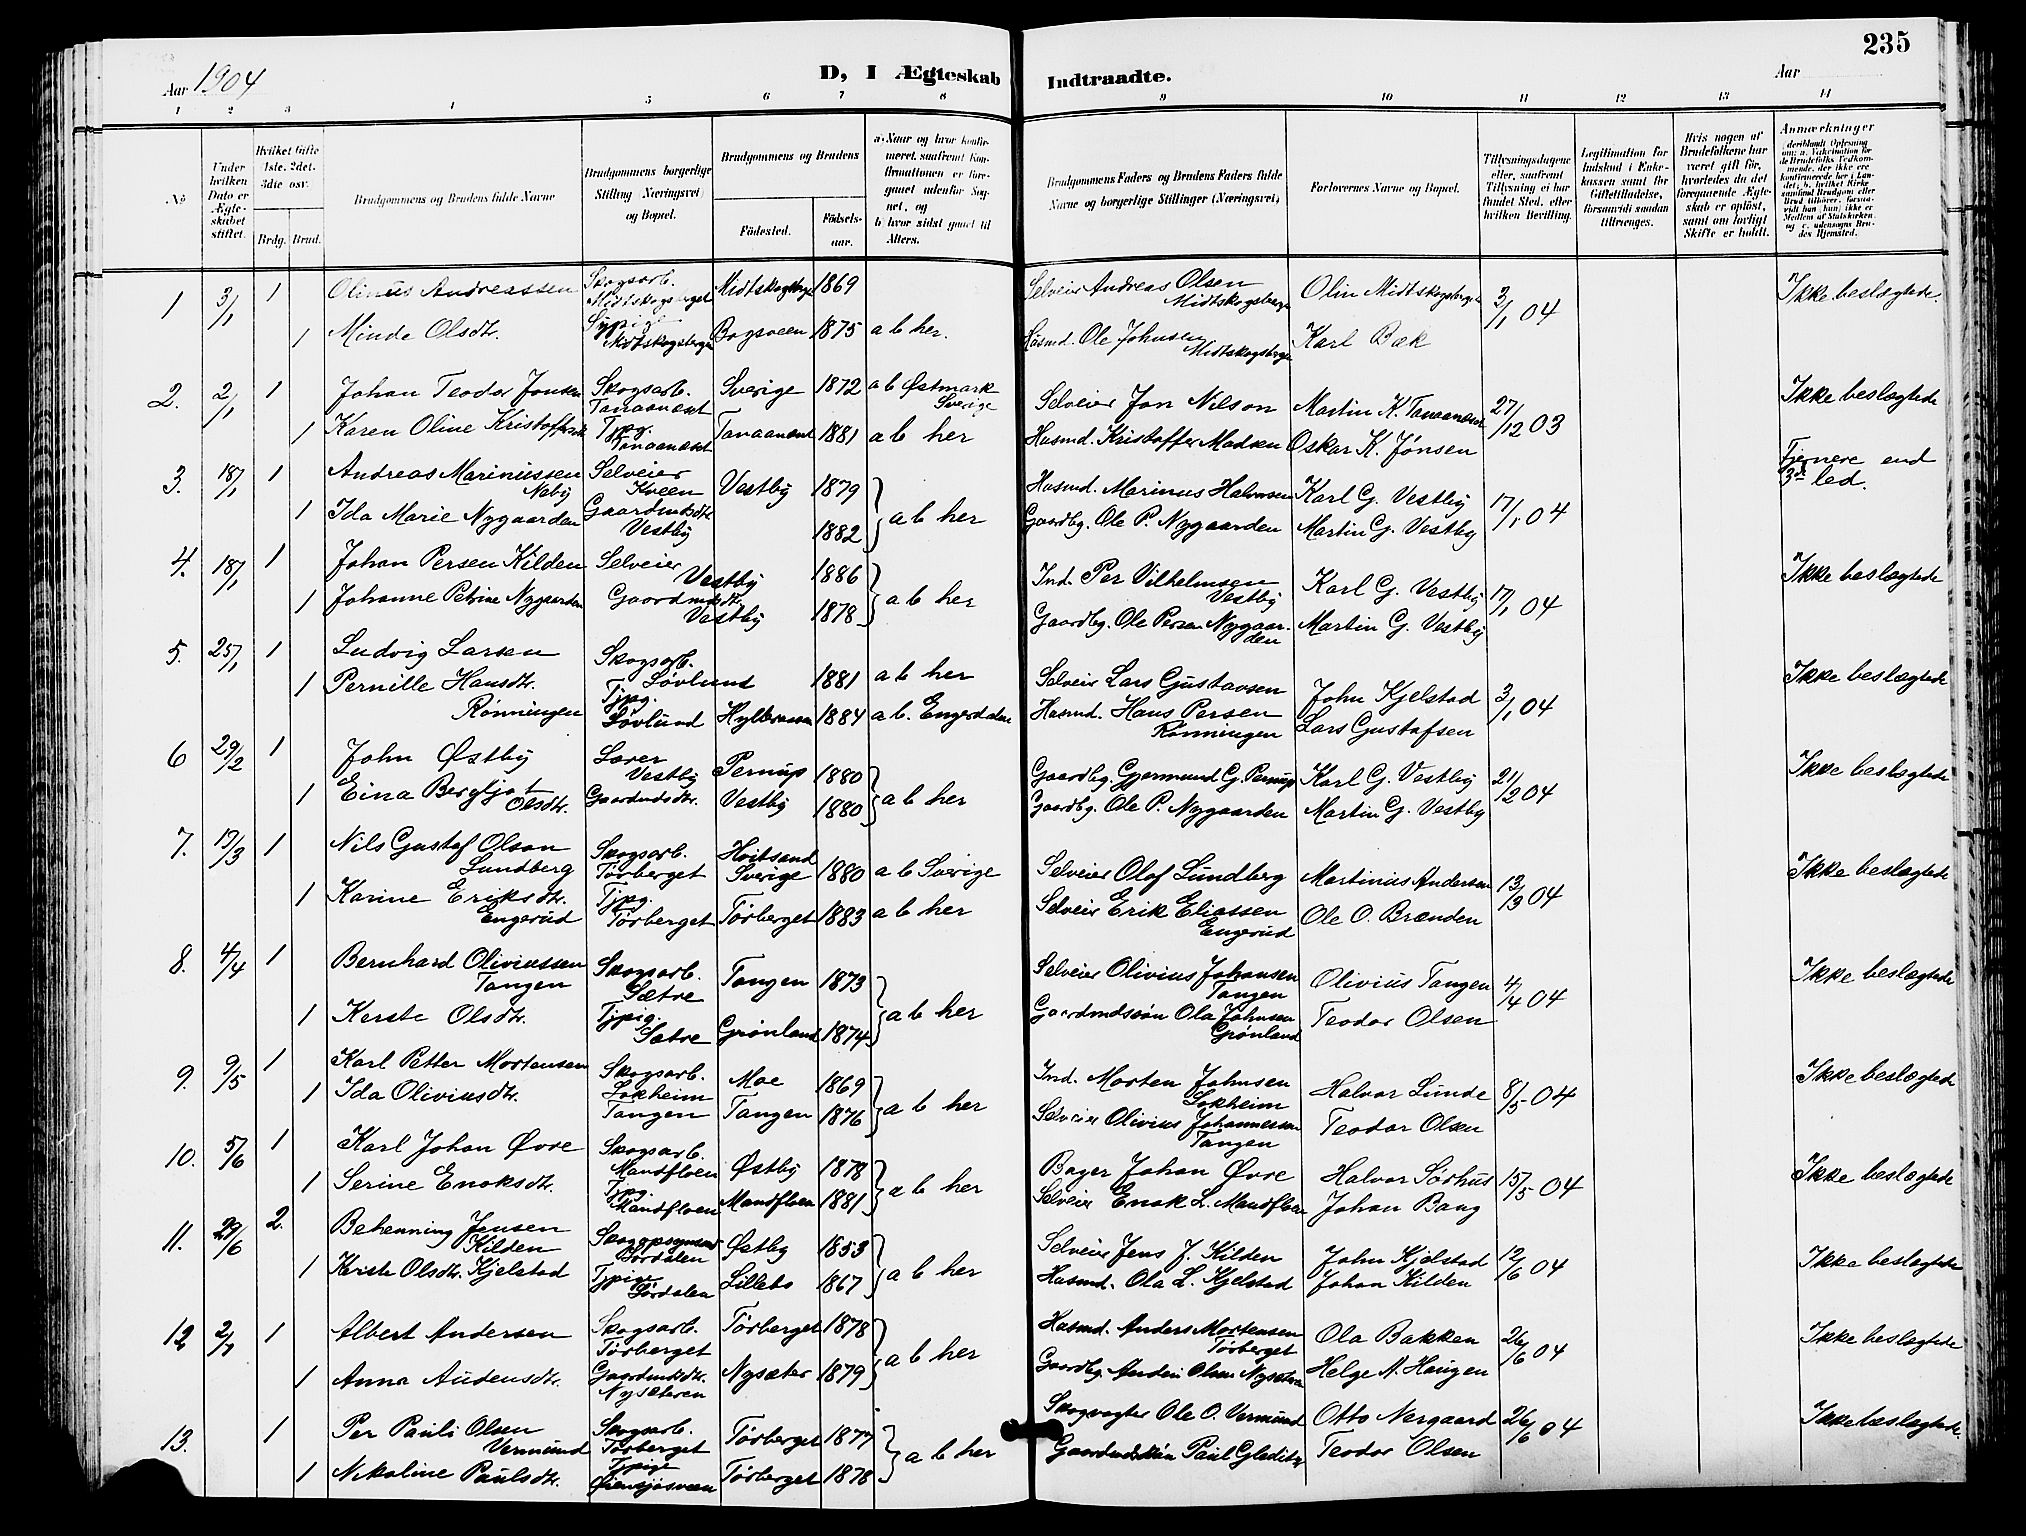 235
Aar 1904
D, I Ægteskab Indtraadte.
Aar
1 2 3 4 5 6 7 8 9 10 11 12 13 14
No
Under hvilken Dato er Ægteskabet stiftet.
Hvilket Gifte 1ste. 2det. 3die osv.
Brdg. Brud.
Brudgommens og Brudens fulde Navne
Brudgommens borgerlige Stilling (Næringsvei) og Bopæl.
Brudgommens og Brudens
Födested. Födselsaar.
a. Naar og hvor konfirmeret, saafremt Konfirmationen er foregaaet udenfor Sognet, og
b. hvor sidst gaaet til Alters.
Brudgommens Faders og Brudens Faders fulde Navne og borgerlige Stillinger (Næringsvei)
Forlovernes Navne og Bopæl.
Tillysningsdagene eller, saafremt Tillysning ei har fundet Sted, efter hvilken Bevilling.
Legitimation for Indskud i Enkekassen samt for Giftetilladelse, forsaavidt saadan tiltrænges.
Hvis nogen af Brudefolkene har været gift för, hvorledes da det foregaaende Ægteskab er oplöst, samt om lovligt Skifte er holdt.
Anmærkninger
1 3/1 1 Olinus Andreassen Skogsarb. Midtskogsberget Midtskogsberget 1869 Selveier Andreas Olsen Midtskogsberget Olin Midtskogsberget 3/1 04 Ikke beslægtede.
1 Minda Olsdtr. Midtskogsberget Bogsveen 1875 a b her. Husmd. Ole Johnsen Midtskogsberget Karl Bæk
2. 2/1 1 Johan Teodor Jonsen Skogsarb. Tanaanæst Sverige 1872 a b Østmark Sverige Selveier Jon Nilson Martin K. Tanaanæst 27/12 03 Ikke beslægtede
1 Karen Oline Kristoffersdtr. Tjpg. Tanaanæst Tanaanæst 1881 a b her Husmd. Kristoffer Madsen Oskar K. Jønsen
3. 18/1 1 Andreas Marinussen Naby Selveier Kveen Vestby 1879 } a b her Husmd. Marinus Halvorsen Karl G. Vestby 17/1 04 Fjernere end 3die led.
1 Ida Marie Nygaarden Gaardmdsdtr. Vestby 1882 Gaardbg. Ole P. Nygaarden Martin G. Vestby
4. 18/1 1 Johan Persen Kilden Selveier Vestby 1886 } a b her Ind. Per Vilhelmsen Vestby Karl G. Vestby 17/1 04 Ikke beslægtede
1 Johanne Petrine Nygaarden Gaardmdsdtr. Vestby 1878 Gaardbg. Ole Persen Nygaarden Martin G. Vestby
5. 25/1 1 Ludvig Larsen Skogsarb. Løvlund 1881 a b her Selveier Lars Gustavsen John Kjelstad 3/1 04 Ikke beslægtede
1 Pernille Hansdtr. Rønningen Tjpg. Løvlund 1884 a b. Engerdalen Husmd. Hans Persen Rønningen Lars Gustafsen
6 29/2 1 John Østby Lærer Vestby Pernup 1880 } a b her Gaardbg. Gjermund G. Pernup Karl G. Vestby 21/2 04 Ikke beslægtede
1 Eina Bergljot Olsdtr. Gaardmdsdtr. Vestby 1880 Gaardbg. Ole P. Nygaarden Martin G. Vestby
7. 13/3 1 Nils Gustaf Olson Lundberg Skogsarb. Tørberget Hvitsand Sverige 1880 a b Sverige Selveier Olof Lundberg Martinius Andersen 13/3 04 Ikke beslægtede
1 Karine Eriksdtr. Engerud Tjpg. Tørberget Tørberget 1883 a b her Selveier Erik Eliassen Engerud Ole O. Brænden
8. 4/4 1 Bernhard Oliviussen Tangen Skogsarb. Sætre Tangen 1873 } a b her Selveier Olivius Johansen Tangen Olivius Tangen 4/4 04 Ikke beslægtede
1 Kerste Olsdtr. Tjpig. Sætre Grønland 1874 Gaardmdssøn Ola Johnsen Grønland Teodor Olsen
9. 9/5 1 Karl Petter Mortensen Skogsarb. Lokheim Moe 1869 } a b her Ind. Morten Johnsen Lokheim Halvor Lunde 8/5 04 Ikke beslægtede
1 Ida Oliviusdtr. Tangen Tangen 1876 Selveier Olivius Johannessen Tangen Teodor Olsen
10. 5/6 1 Karl Johan Øvre Skogsarb. Mandfloen Østby 1878 } a b her Bager Johan Øvre Halvor Sørhus 15/5 04 Ikke beslægtede
1 Serine Enoksdtr. Tjpg. Mandfloen Mandfloen 1881 Selveier Enok L. Mandfloen Johan Bang
11. 29/6 2. Behenning Jensen Kilden Skogopsynsmd Sørdalen Østby 1853 } a b her Selveier Jens J. Kilden John Kjelstad 12/6 04 Ikke beslægtede
1 Kerste Olsdtr. Kjelstad Tjpige Sørdalen Lillebo 1867 Husmd. Ola L. Kjelstad Johan Kilden
12. 2/7 1 Albert Andersen Skogsarb. Tørberget Tørberget 1878 } a b her Husmd. Anders Mortensen Tørberget Ola Bakken 26/6 04 Ikke beslægtede
1 Anna Audensdtr. Gaardmdsdtr. Nysæteren Nysæter 1879 Gaardbg. Auden Olsen Nysæteren Helge A. Haugen
13. 1 Per Pauli Olsen Vermund Skogsarb. Tørberget Tørberget 1877 } a b her Skogvogter Ole O. Vermund Otto Nergaard 26/6 04 Ikke beslægtede.
1 Nikoline Paulsdtr. Tjpige Tørberget 1878 Gaardmdssøn Paul Teodor Olsen